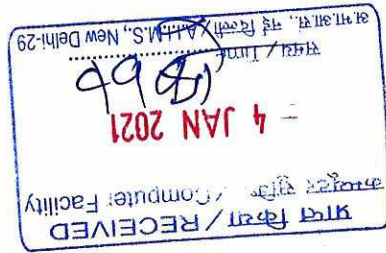 प्राप्त किया / RECEIVED
कम्प्यूटर सुविधा / Computer Facility
- 4 JAN 2021
समय / Time
अ.भा.आ.सं., नई दिल्ली / A.I.I.M.S., New Delhi-29